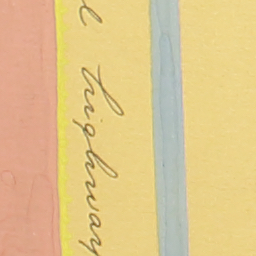 l highway